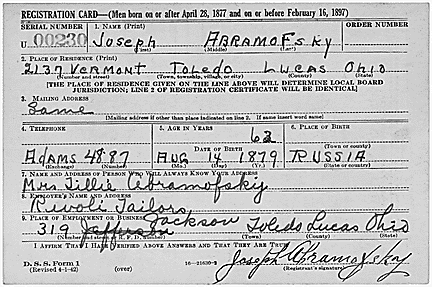 REGISTRATION CARD—(Men born on or after April 28, 1877 and on or before February 16, 1897)
SERIAL NUMBER 1. NAME (Print) ORDER NUMBER
U 00230 JOSEPH ABRAMOFSKY
(First) (Middle) (Last)
2. PLACE OF RESIDENCE (Print)
2137 VERMONT TOLEDO LUCAS OHIO
(Number and street) (Town, township, village, or city) (County) (State)
[THE PLACE OF RESIDENCE GIVEN ON THE LINE ABOVE WILL DETERMINE LOCAL BOARD
JURISDICTION; LINE 2 OF REGISTRATION CERTIFICATE WILL BE IDENTICAL]
3. MAILING ADDRESS
Same
[Mailing address if other than place indicated on line 2. If same insert word same]
4. TELEPHONE 5. AGE IN YEARS 6. PLACE OF BIRTH
62
DATE OF BIRTH (Town or county)
ADAMS 4887 AUG 14 1879 RUSSIA
(Exchange) (Number) (Mo.) (Day) (Yr.) (State or country)
7. NAME AND ADDRESS OF PERSON WHO WILL ALWAYS KNOW YOUR ADDRESS
Mrs Tillie Abramofsky
8. EMPLOYER'S NAME AND ADDRESS
Rivoli Tailors
9. PLACE OF EMPLOYMENT OR BUSINESS Jackson
319 Jefferson Toledo Lucas Ohio
(Number and street or R. F. D. number) (Town) (County) (State)
I AFFIRM THAT I HAVE VERIFIED ABOVE ANSWERS AND THAT THEY ARE TRUE.
D. S. S. Form 1
(Revised 4-1-42) (over) 16—21630-2 Joseph Abramofsky
(Registrant's signature)